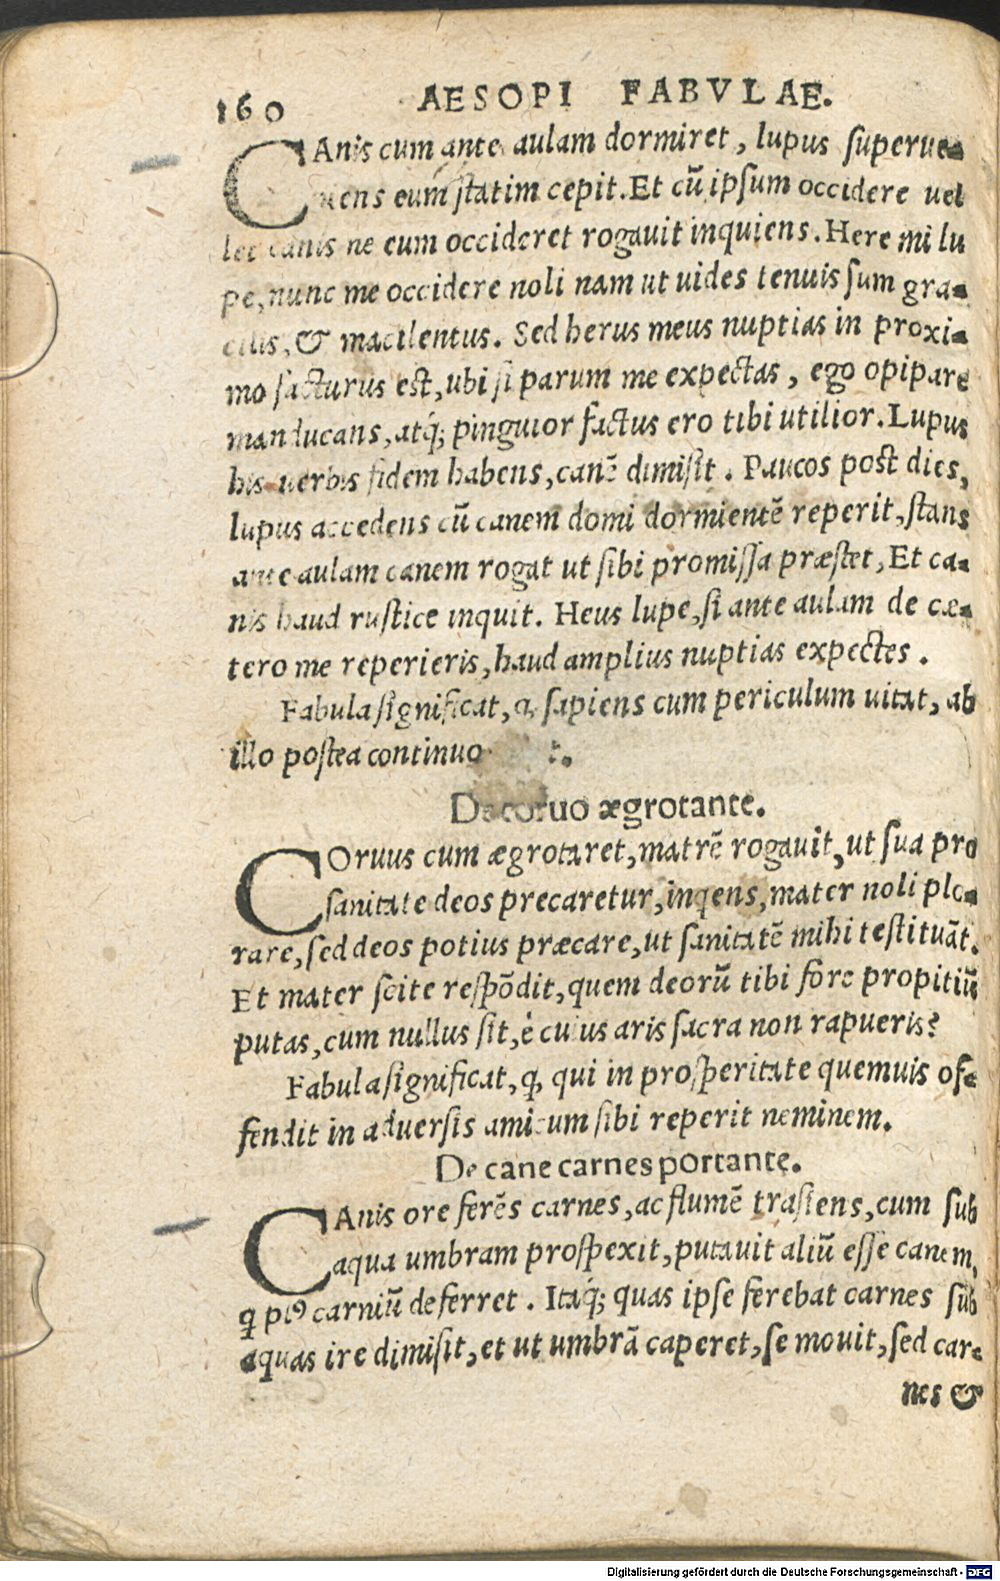 160 AESOPI FABVLAE.
CAnis cum ante aulam dormiret, lupus superue-
niens eum statim cepit. Et cū ipsum occidere uel
let canis ne eum occideret rogauit inquiens. Here mi lu
pe, nunc me occidere noli nam ut uides tenuis sum gra-
cilis, & macilentus. Sed herus meus nuptias in proxi-
mo facturus est, ubi si parum me expectas, ego opipare
manducans, atq́; pinguior factus ero tibi utilior. Lupus
his uerbis fidem habens, canē dimisit. Paucos post dies,
lupus accedens cū canem domi dormientē reperit, stans
ante aulam canem rogat ut sibi promissa præstet, Et ca-
nis haud rustice inquit. Heus lupe, si ante aulam de cæ-
tero me reperieris, haud amplius nuptias expectes.
Fabula significat, ꝙ sapiens cum periculum uitat, ab
illo postea continuo
De coruo ægrotante.
COruus cum ægrotaret, matrē rogauit, ut sua pro
sanitate deos precaretur, inqens, mater noli plo-
rare, sed deos potius præcare, ut sanitatē mihi testituāt.
Et mater scite respōdit, quem deorū tibi fore propitiū
putas, cum nullus sit, è cuius aris sacra non rapueris?
Fabula significat, ꝙ qui in prosperitate quemuis of-
fendit in aduersis amicum sibi reperit neminem.
De cane carnes portante.
CAnis ore ferēs carnes, ac flumē trāsiens, cum sub
aqua umbram prospexit, putauit aliū esse canem,
q plꝰ carniū deferret. Itaq́; quas ipse ferebat carnes sub
aquas ire dimisit, et ut umbrā caperet, se mouit, sed car-
nes &
Digitalisierung gefördert durch die Deutsche Forschungsgemeinschaft - DFG